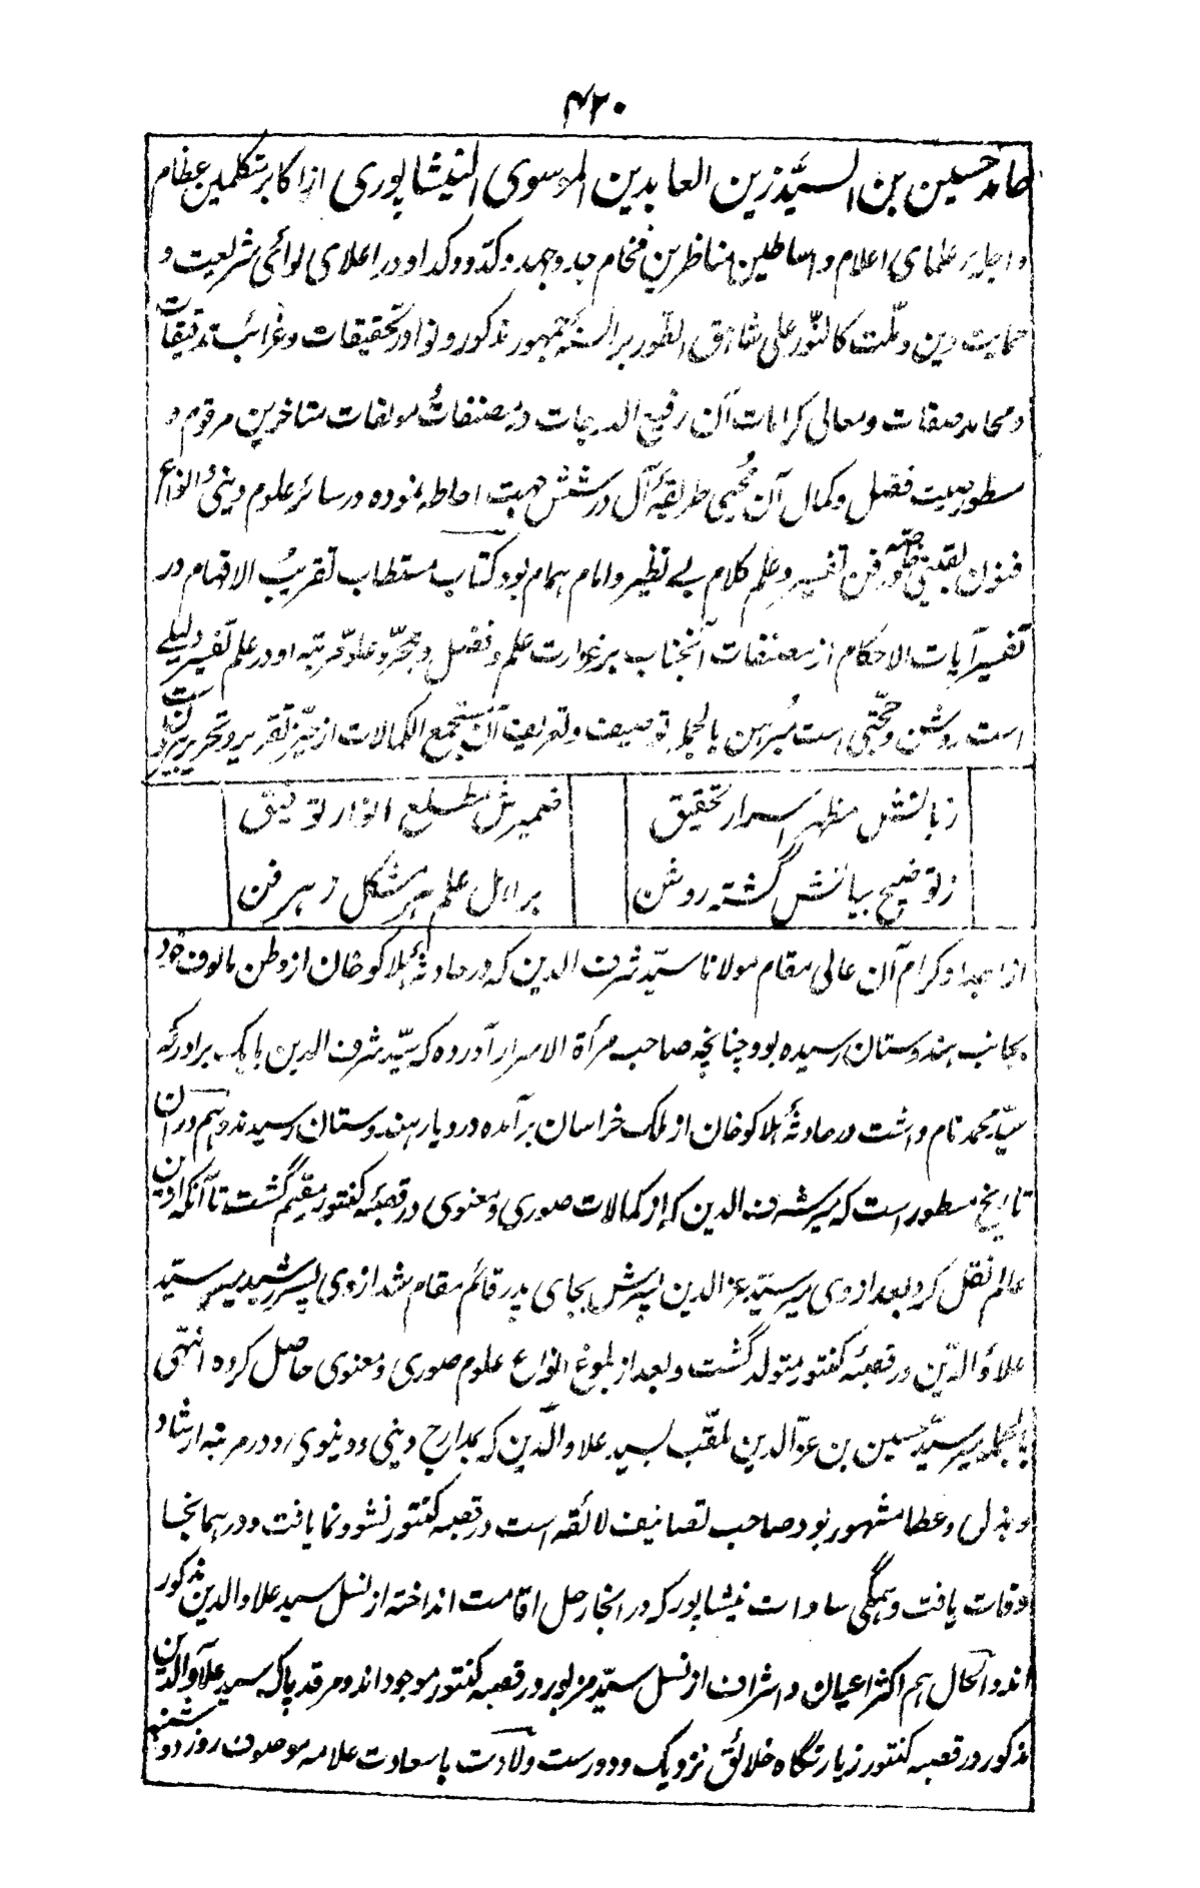 ۴۲۰
حامد حسین بن السیّد زین العابدین الموسوی النیشاپوری از اکابر متکلمین عظام
و اجلیٔر علمای اعلام و اساطین مناظرین فخام جد و جهد و کدّ و وکد او در اعلای لوائی شریعت و
حمایت دین و ملّت کالنّور علی شاهق الطّور بر السنهٔ جمهور مذکور و نوادر تحقیقات و غرائب تدقیقات
و محامد صفات و معالی کرامات آن رفیع الدرجات در مصنفات و مولفات متاخرین مرقوم و
مسطور صیت فضل و کمال آن مُحیی طریقهٔ آل در شش جهت احاطه نموده در سائر علوم دینی و انواع
فنون یقینی خصوص در فن تفسیر و علم کلام بے نظیر و امام همام بود کتاب مستطاب تقریب الافهام در
تفسیر آیات الاحکام از مصنفات آنجناب بر غزارت علم و فضل و تبحّر و علوّ مرتبه او در علم تفسیر دلیلے
است روشن و حجّتی است مُبرهن بالجمله توصیف و تعریف آن مستجمع الکمالات از حیّز تقریر و تحریر بیرون
زبانش مظهر اسرار تحقیق ضمیرش مطلع انوار توفیق
ز توضیح بیانش گشته روشن بر اهل علم هر مشکل ز هر فن
از اجداد کرام آن عالی مقام مولانا سیّد شرف الدین که در حادثهٔ هلاکو خان از وطن مالوف خود
بجانب هندوستان رسیده بود چنانچه صاحب مرأة الاسرار آورده که سیّد شرف الدین با یک برادر که
سیّد محمد نام داشت در حادثهٔ هلاکو خان از ملک خراسان برآمده در دیار هندوستان رسیدند و هم در آن
تاریخ مسطور است که میر شرف الدین که از کمالات صوری و معنوی در قصبهٔ کنتور مقیم گشت تا آنکه ازین
عالم نقل کرد بعد از وی میر سیّد عز الدین پسرش بجای پدر قائم مقام شد از وی پسر رشید میر سیّد
علاؤ الدّین در قصبهٔ کنتور متولد گشت و بعد از بلوغ انواع علوم صوری و معنوی حاصل کرده انتهی
بالجمله میر سیّد حسین بن عزّ الدین ملقّب بسید علاو الدّین که بمدارج دینی و دینوی و در مرتبه ارشاد
و بذل و عطا مشهور بود صاحب تصانیف لائقه است در قصبه کنتور نشو و نما یافت و در همانجا
وفات یافت و همگی سادات نیشاپور که در انجا رحل اقامت انداخته از نسل سید علاو الدین مذکور
اند و الحال هم اکثر اعیان و اشراف از نسل سیّد مزبور در قصبه کنتور موجود اند و مرقد پاک سید علاؤ الدین
مذکور در قصبه کنتور زیارتگاه خلائق نزدیک و دور است ولادت باسعادت علامه موصوف روز دوشنبه